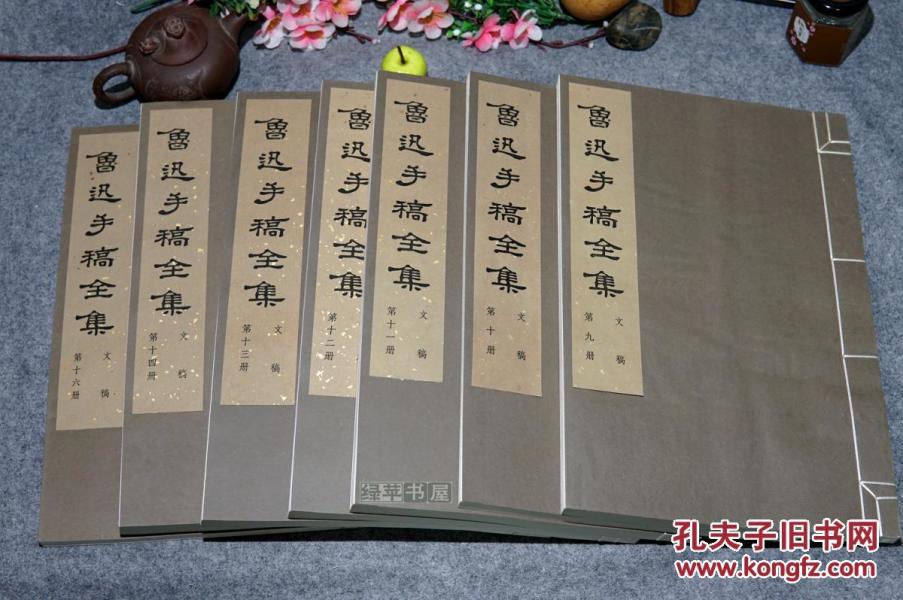 魯迅手稿全集
文稿
第十六册
魯迅手稿全集
文稿
第十四册
魯迅手稿全集
文稿
第十三册
魯迅手稿全集
第十二册
魯迅手稿全集
文稿
第十一册
魯迅手稿全集
文稿
第十册
魯迅手稿全集
文稿
第九册
绿苹书屋
孔夫子旧书网
www.kongfz.com